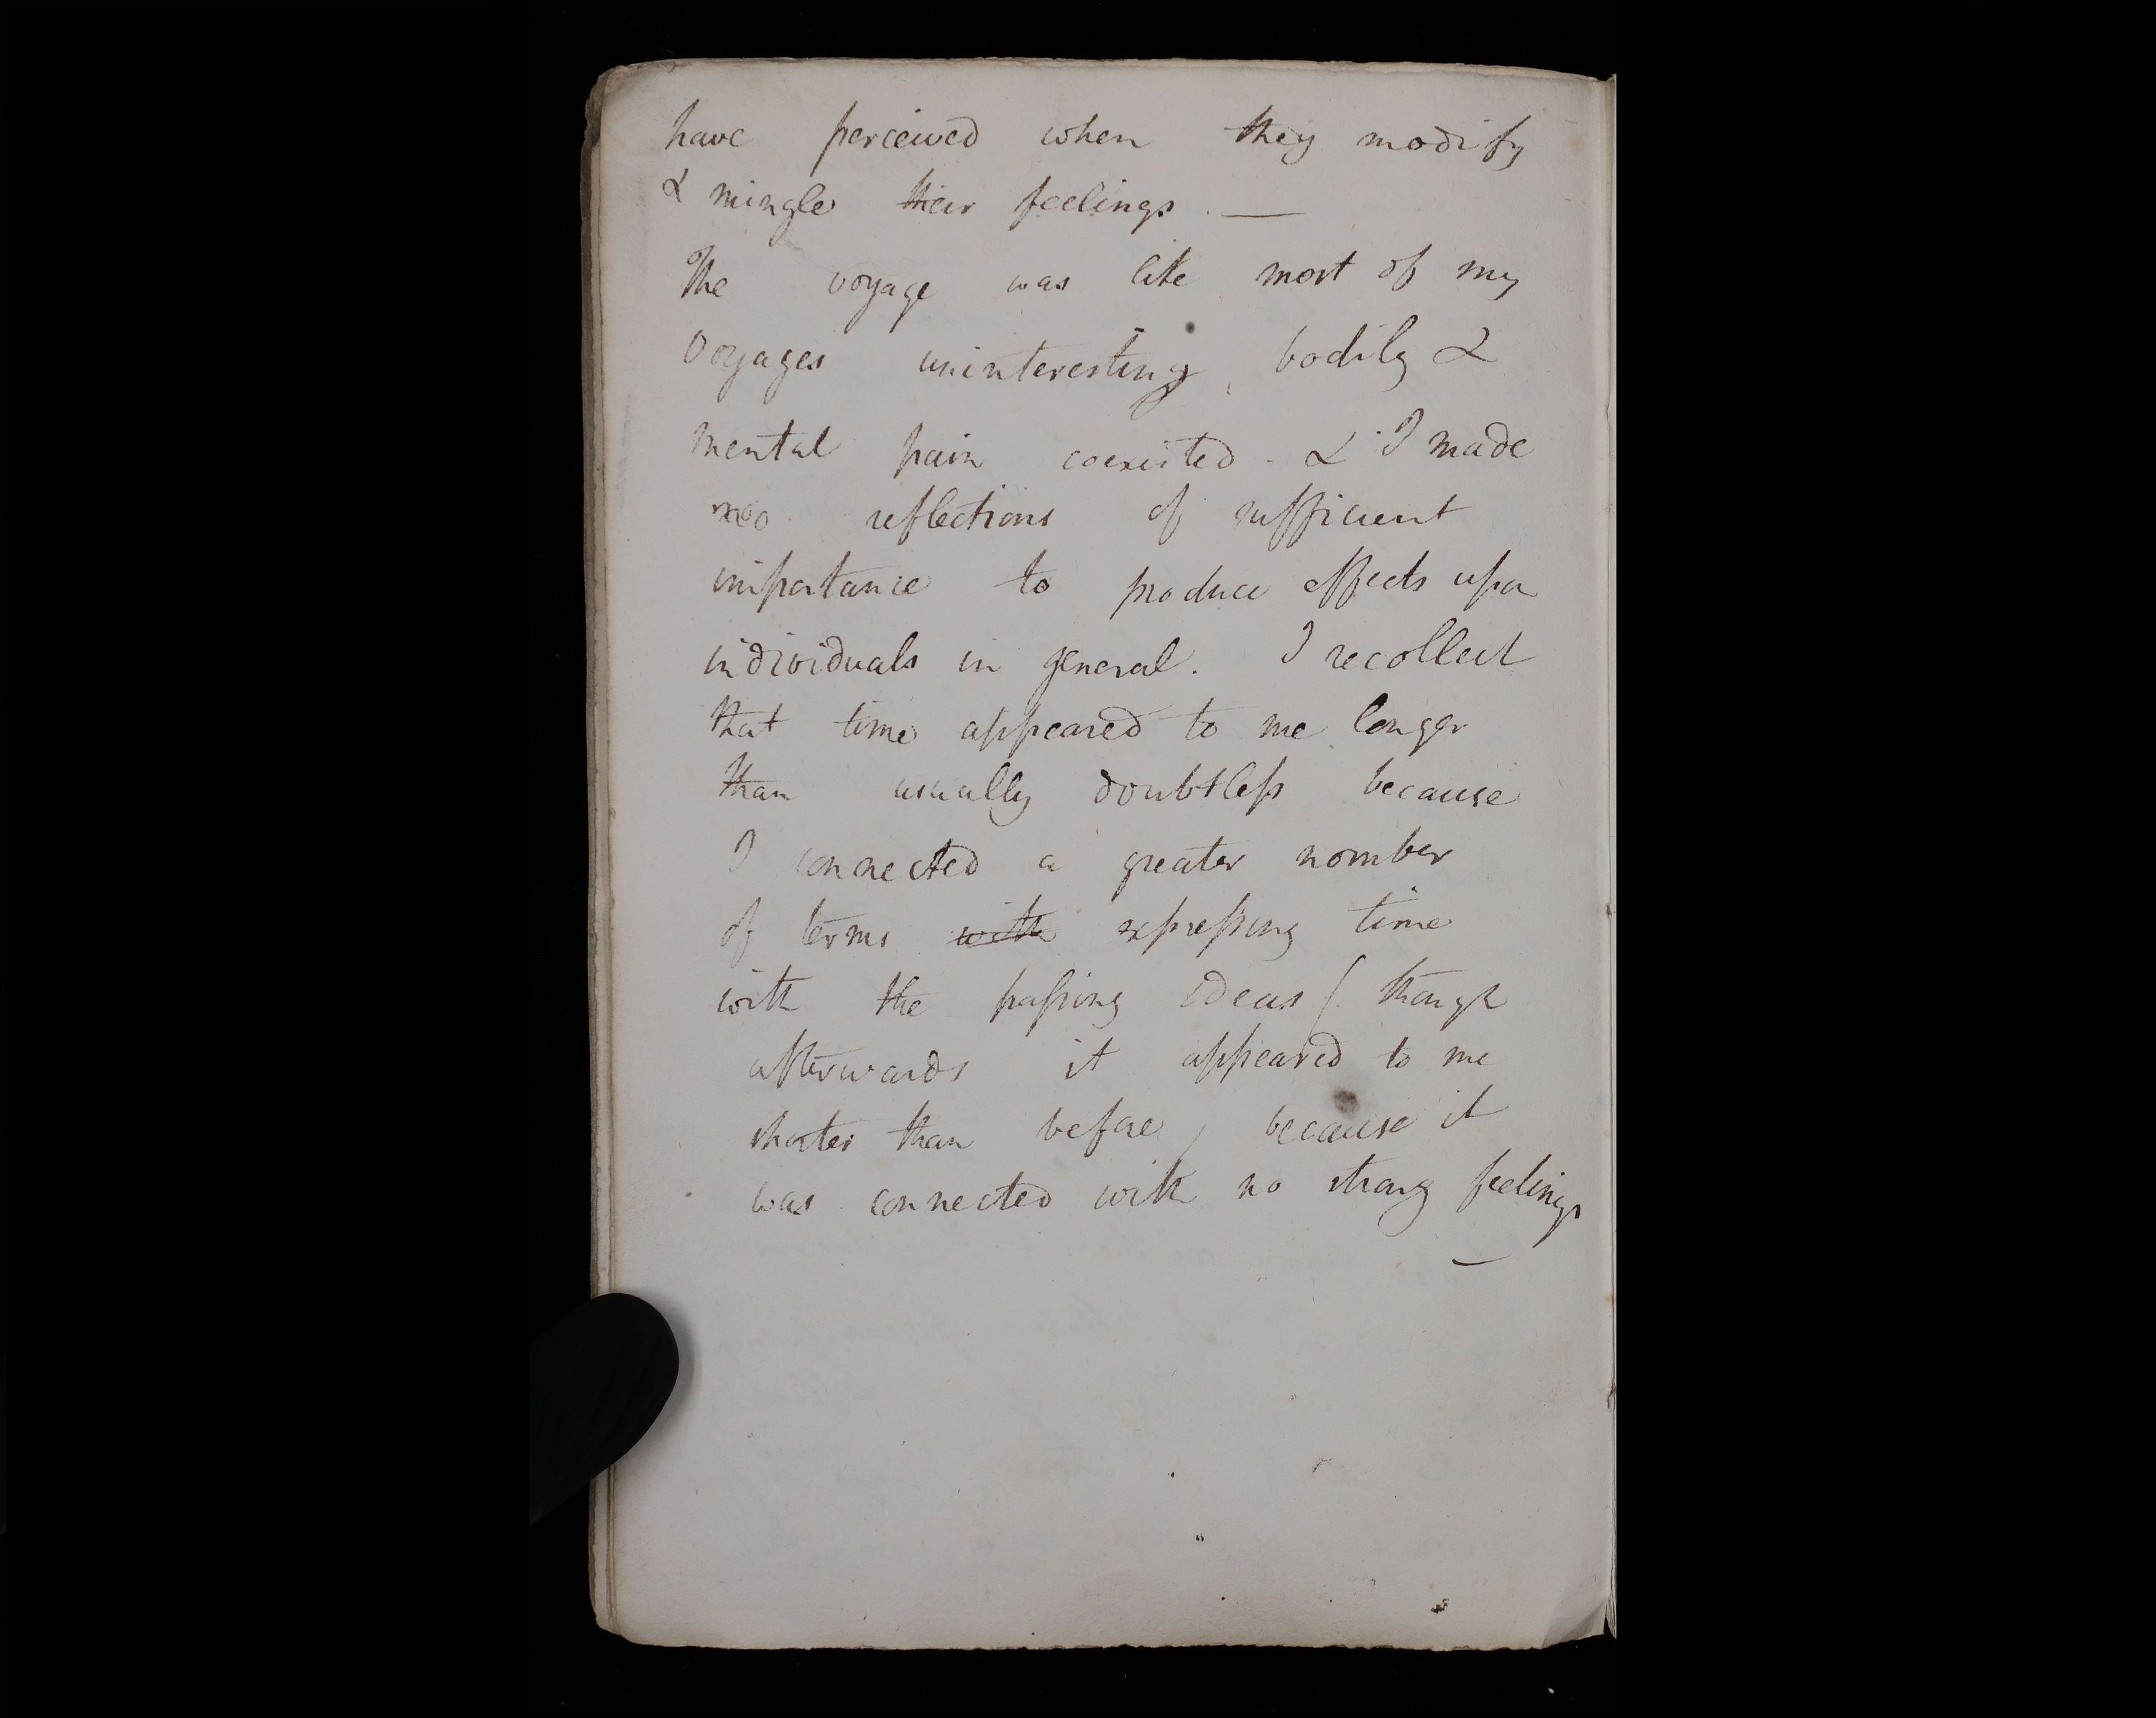 have perceived when they modify
& mingle their feelings. —
The voyage was like most of my
voyages uninteresting, bodily &
mental pain coexisted - & I made
no reflections of sufficient
importance to produce effects upon
individuals in general. I recollect
that time appeared to me longer
than usually doubtless because
I connected a greater nomber
of terms with expressing time
with the passing ideas (though
afterwards it appeared to me
shorter than before, because it
was connected with no strong feelings
—